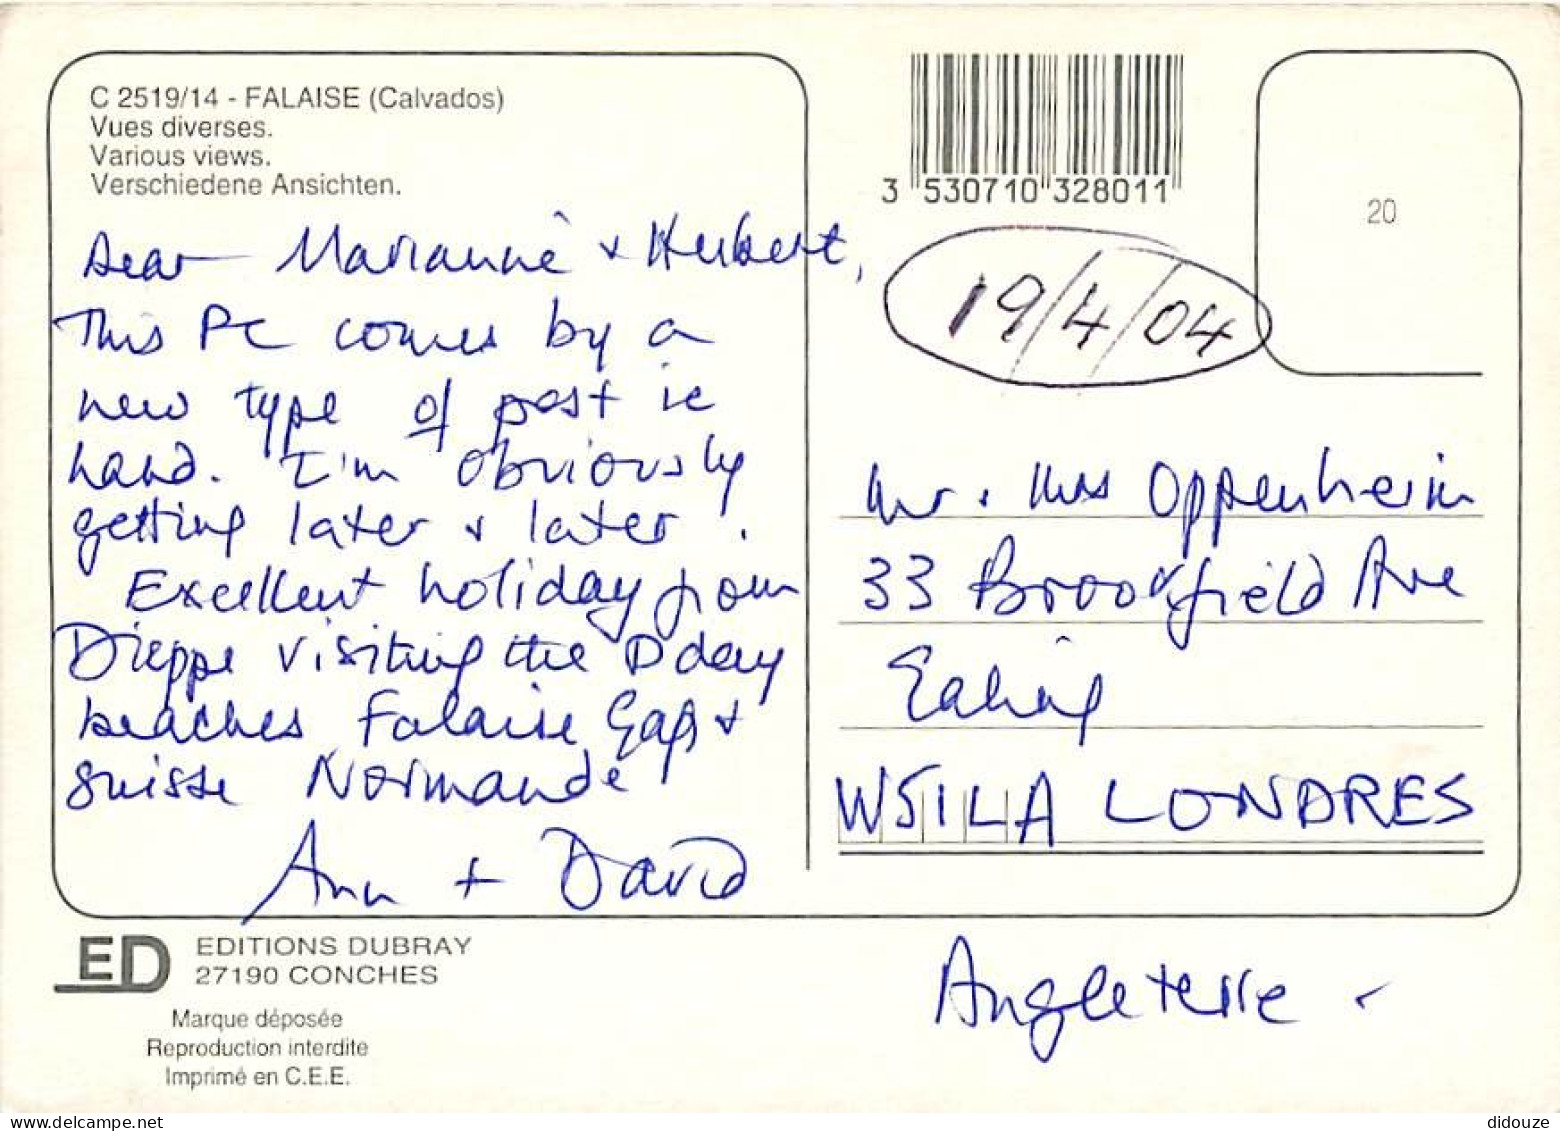 C 2519/14 - FALAISE (Calvados)
Vues diverses.
Various views.
Verschiedene Ansichten.
Dear Marianne + Herbert,
This PC comes by a
new type of post ie
hand. I'm obviously
getting later + later!
Excellent holiday from
Dieppe visiting the D day
beaches Falaise Gap +
Suisse Normande
Ann + David
ED
EDITIONS DUBRAY
27190 CONCHES
Marque déposée
Reproduction interdite
Imprimé en C.E.E.
3 530710 328011
20
19/4/04
Mr + Mrs Oppenheim
33 Brookfield Ave
Ealing
W51LA LONDRES
Angleterre -
didouze